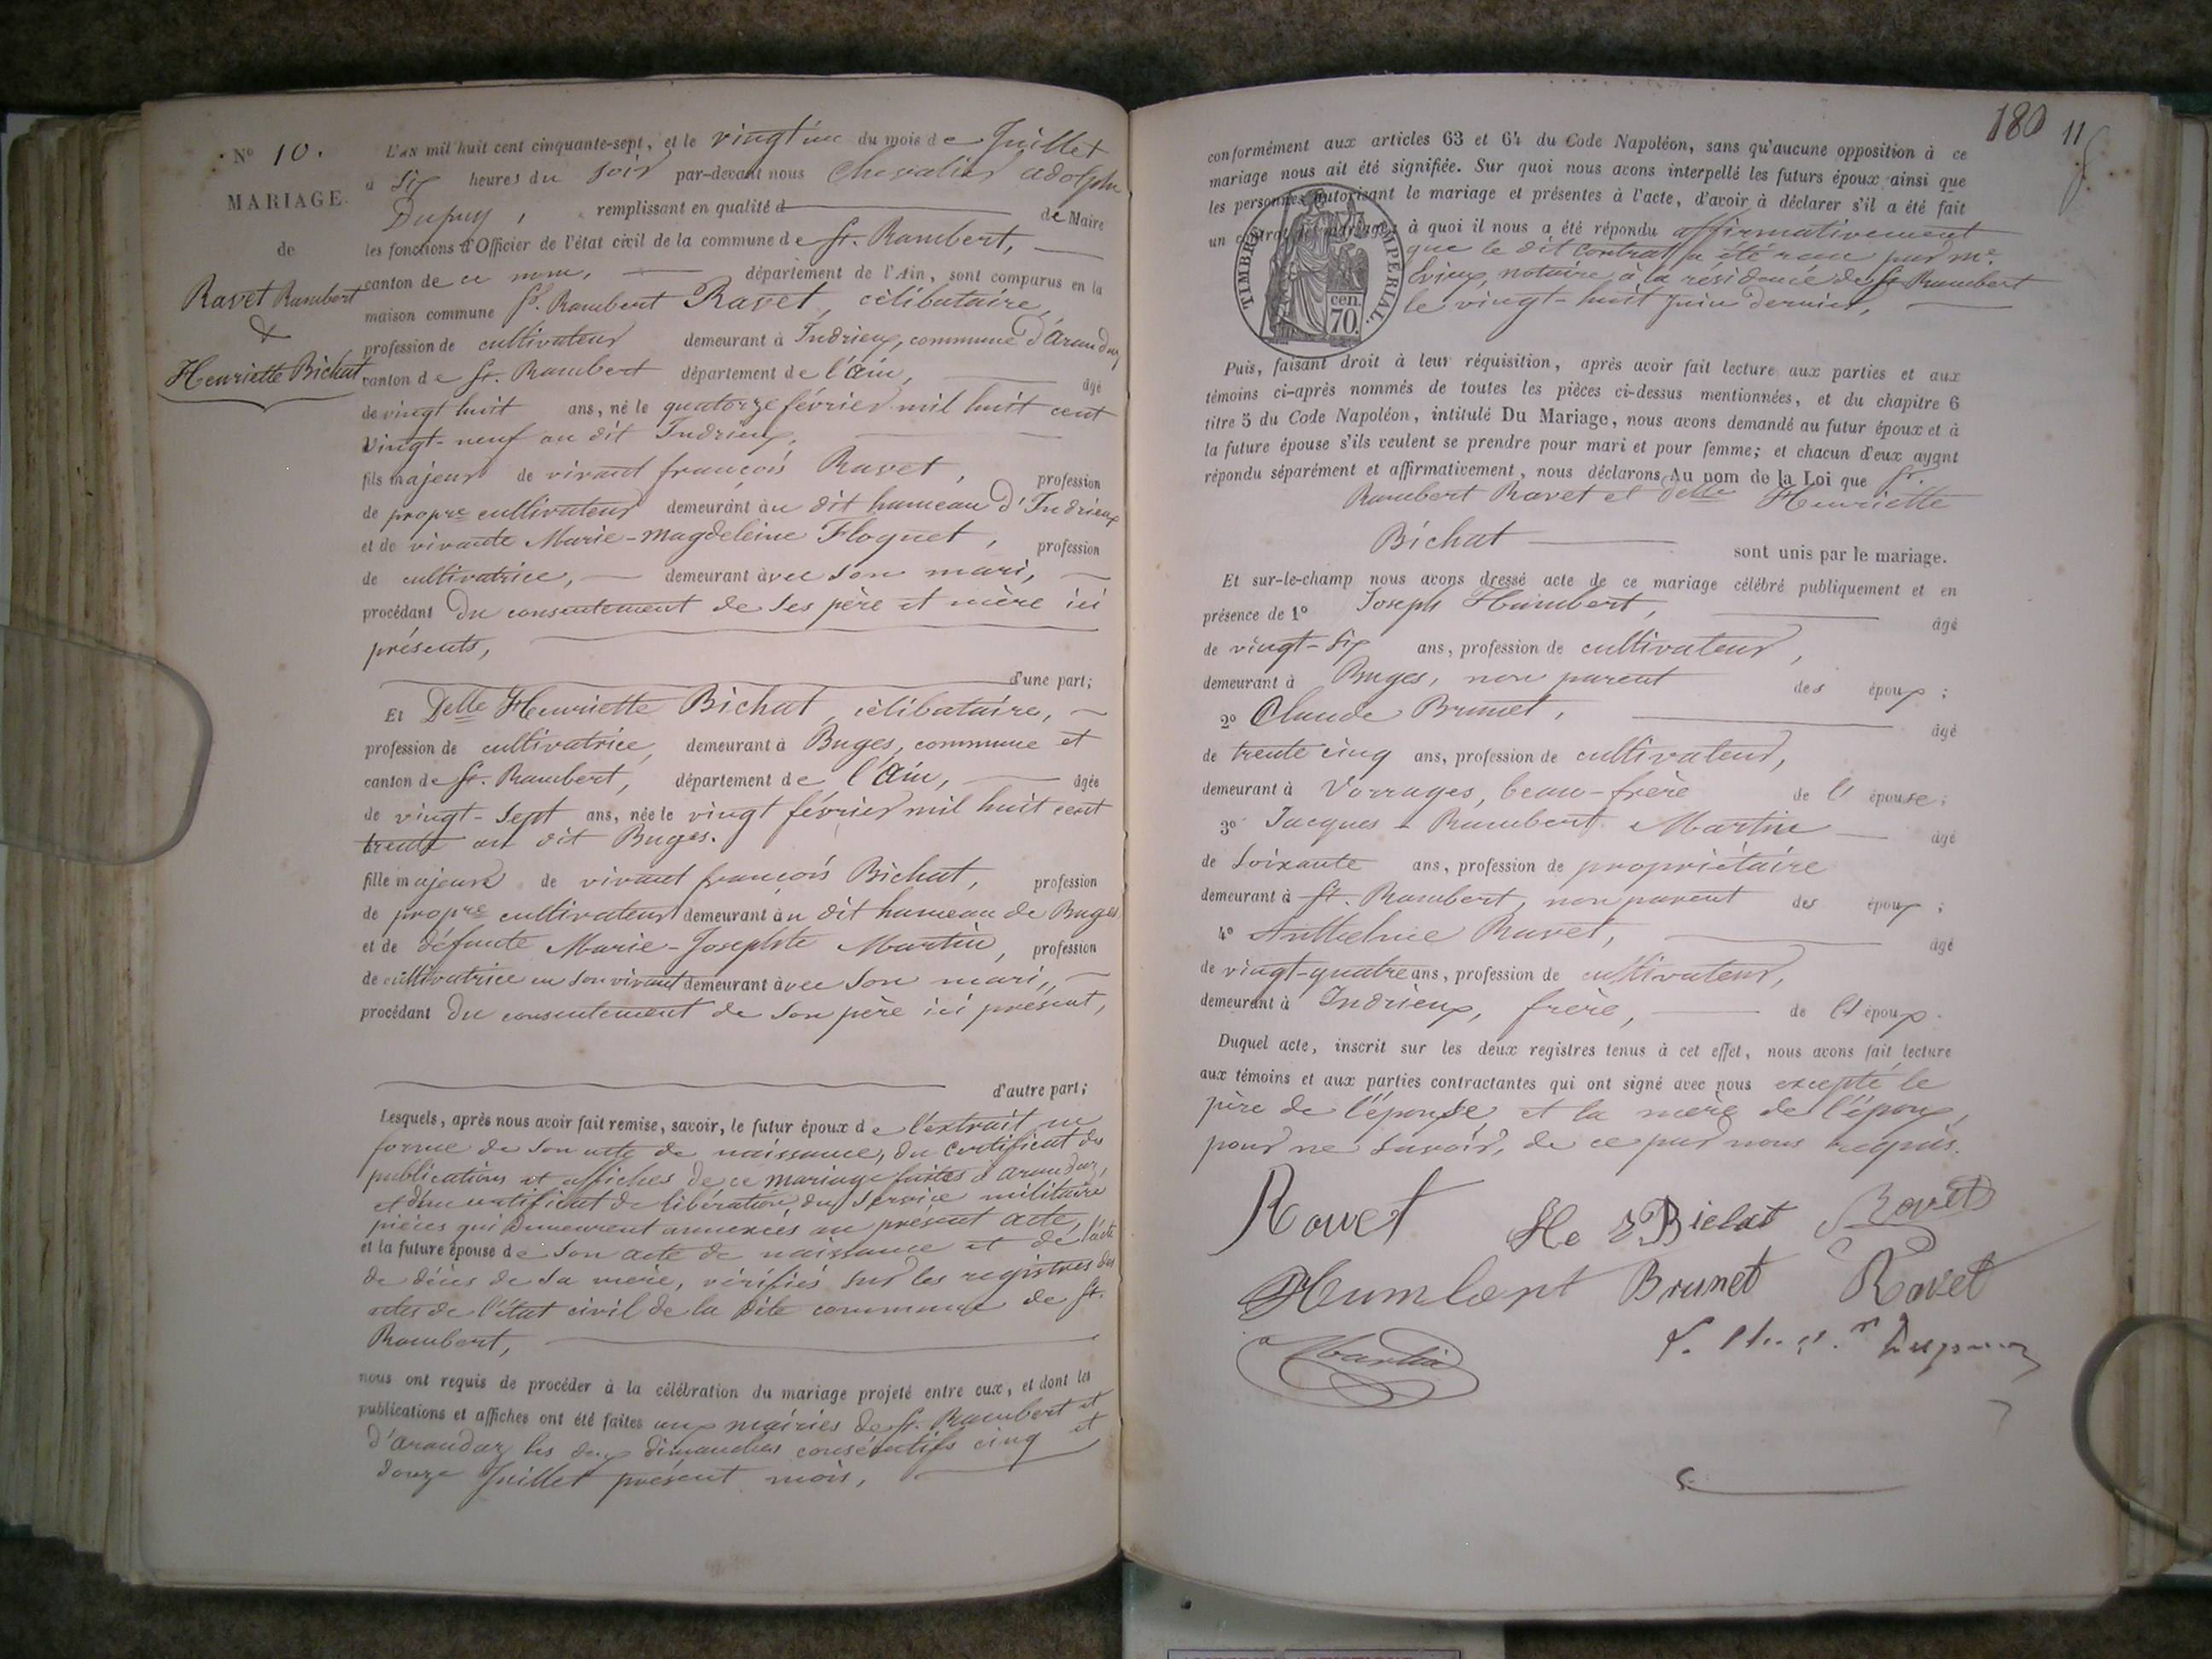 N° 10.
MARIAGE
de
Ravet Rambert
&
Henriette Bichat
L'AN mil huit cent cinquante-sept, et le vingt un du mois de Juillet
à Six heures du soir par-devant nous Chevalier adolphe
Dupuy, remplissant en qualité d de Maire
les fonctions d'Officier de l'état civil de la commune de St. Rambert,
canton de ce nom, département de l'Ain, sont comparus en la
maison commune Sr. Rambert Ravet, célibataire,
profession de cultivateur demeurant à Indrieux, commune d'arandaz
canton de St. Rambert département de l'ain, âgé
de vingt huit ans, né le quatorze février mil huit cent
vingt-neuf au dit Indrieux,
fils majeur de vivant françois Ravet, profession
de propre cultivateur demeurant au dit hameau d'Indrieux
et de vivante Marie-Magdeleine Floquet, profession
de cultivatrice, demeurant avec son mari,
procédant du consentement de ses père et mère ici
présents,
d'une part;
Et Delle Henriette Bichat, célibataire,
profession de cultivatrice, demeurant à Buges, commune et
canton de St. Rambert, département de l'ain, âgée
de vingt-sept ans, née le vingt février mil huit cent
trente au dit Buges.
fille majeure de vivant françois Bichat, profession
de propre cultivateur demeurant au dit hameau de Buges
et de défunte Marie-Josephte Martin, profession
de cultivatrice en son vivant demeurant avec son mari,
procédant du consentement de son père ici présent,
d'autre part;
Lesquels, après nous avoir fait remise, savoir, le futur époux de l'extrait en
forme de son acte de naissance, du certificat des
publications et affiches de ce mariage faites à arandaz,
et d'un certificat de libération du service militaire
pièces qui demeurent annexées au présent acte,
et la future épouse de son acte de naissance et de l'acte
de décès de sa mère, vérifiés sur les registres des
actes de l'état civil de la dite commune de St.
Rambert,
nous ont requis de procéder à la célébration du mariage projeté entre eux, et dont les
publications et affiches ont été faites aux mairies de St. Rambert et
d'arandaz les deux dimanches consécutifs cinq et
douze Juillet présent mois,
180 11
conformément aux articles 63 et 64 du Code Napoléon, sans qu'aucune opposition à ce
mariage nous ait été signifiée. Sur quoi nous avons interpellé les futurs époux ainsi que
les personnes autorisant le mariage et présentes à l'acte, d'avoir à déclarer s'il a été fait
un contrat de mariage, à quoi il nous a été répondu affirmativement
que le dit contrat a été reçu par Me.
notaire à la résidence de St Rambert
le vingt-huit Juin dernier,
TIMBRE IMPÉRIAL.
cen.
70.
Puis, faisant droit à leur réquisition, après avoir fait lecture aux parties et aux
témoins ci-après nommés de toutes les pièces ci-dessus mentionnées, et du chapitre 6
titre 5 du Code Napoléon, intitulé Du Mariage, nous avons demandé au futur époux et à
la future épouse s'ils veulent se prendre pour mari et pour femme; et chacun d'eux ayant
répondu séparément et affirmativement, nous déclarons Au nom de la Loi que Sr.
Rambert Ravet et Delle Henriette
Bichat sont unis par le mariage.
Et sur-le-champ nous avons dressé acte de ce mariage célébré publiquement et en
présence de 1° Joseph Humbert, âgé
de vingt-six ans, profession de cultivateur,
demeurant à Buges, non parent des époux;
2° Claude Brunet, âgé
de trente cinq ans, profession de cultivateur,
demeurant à Vorrages, beau-frère de l'épouse;
3° Jacques-Rambert Martin âgé
de soixante ans, profession de propriétaire
demeurant à St. Rambert, non parent des époux;
4° Anthelme Ravet, âgé
de vingt-quatre ans, profession de cultivateur,
demeurant à Indrieux, frère, de l'époux.
Duquel acte, inscrit sur les deux registres tenus à cet effet, nous avons fait lecture
aux témoins et aux parties contractantes qui ont signé avec nous excepté le
père de l'épouse, et la mère de l'époux,
pour ne savoir, de ce par nous requis.
Ravet He Bichat Ravet
Humbert Brunet Ravet
Martin Dupuy